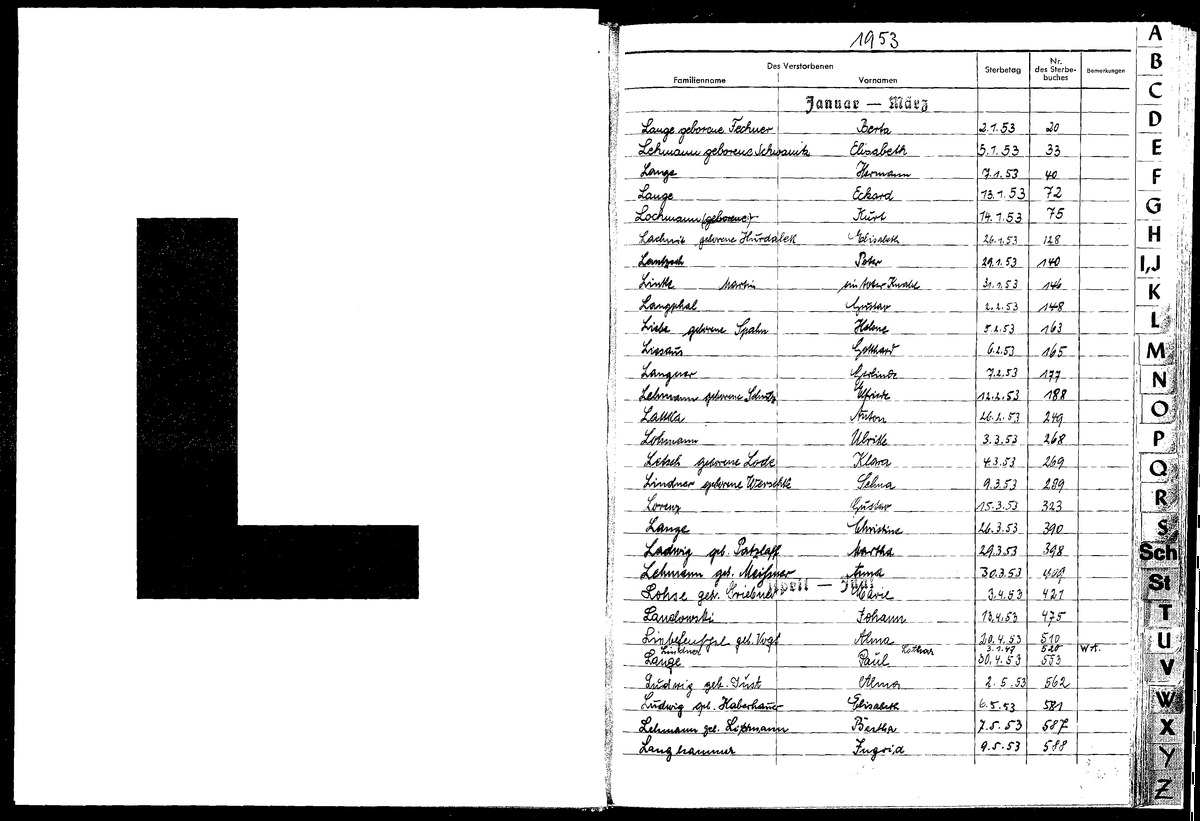 L
1953
Des Verstorbenen
Familienname Vornamen Sterbetag Nr. des Sterbe-buches Bemerkungen
Januar — März
Lange geborene Fechner Berta 2.1.53 20
Lehmann geborene Schwanitz Elisabeth 5.1.53 33
Lange Hermann 7.1.53 40
Lange Eckard 13.1.53 72
Lochmann (geborene) Kurt 14.1.53 75
Lachnit geborene Hurdalek Elisabeth 26.1.53 128
Lantzsch Peter 29.1.53 140
Linke Martin ein toter Knabe 31.1.53 146
Langphal Gustav 2.2.53 148
Liebe geborene Spahn Helene 5.2.53 163
Lissaus Gotthard 6.2.53 165
Langner Gerlinde 7.2.53 177
Lehmann geborene Schulz Elfriede 12.2.53 188
Lattka Anton 26.2.53 249
Lohmann Ulrike 3.3.53 268
Letsch geborene Lode Klara 4.3.53 269
Lindner geborene Werschke Selma 9.3.53 289
Lorenz Gustav 15.3.53 323
Lange Christine 26.3.53 390
Ladwig geb. Patzlaff Martha 29.3.53 398
Lehmann geb. Meißner Anna 30.3.53 409
April — Juni
Lohse geb. Griebner Marie 3.4.53 421
Landowski Johann 13.4.53 475
geb. Vogt Alma 20.4.53 510
Lindner Lothar 3.1.47 520 W.A.
Lange Paul 30.4.53 553
Ludwig geb. Just Alma 2.5.53 562
Ludwig geb. Haberhauer Elisabeth 6.5.53 581
Lehmann geb. Littmann Bertha 7.5.53 587
Langhammer Ingrid 9.5.53 588
A
B
C
D
E
F
G
H
I,J
K
L
M
N
O
P
Q
R
S
Sch
St
T
U
V
W
X
Y
Z